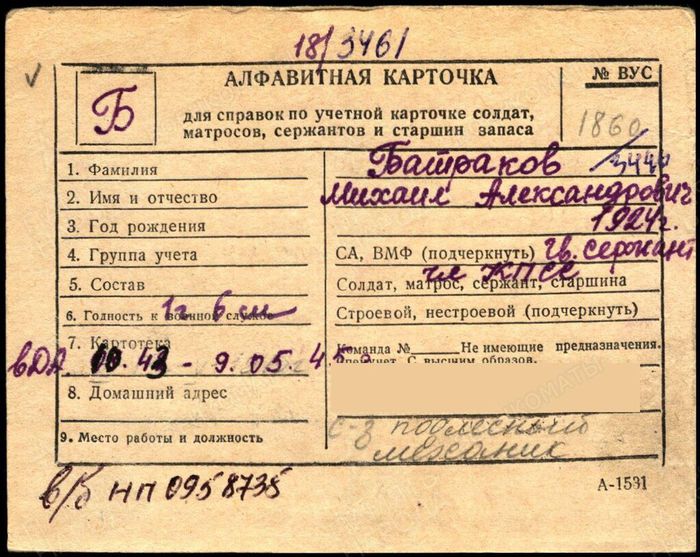 18/3461
АЛФАВИТНАЯ КАРТОЧКА
№ ВУС
Б
для справок по учетной карточке солдат,
матросов, сержантов и старшин запаса
1860
1. Фамилия Батраков
2. Имя и отчество Михаил Александрович
3. Год рождения 1924г.
4. Группа учета СА, ВМФ (подчеркнуть) гв. сержант
чл КПСС
5. Состав Солдат, матрос, сержант, старшина
6. Годность к военной службе Строевой, нестроевой (подчеркнуть)
7. Картотека Команда № Не имеющие предназначения.
С высшим образов.
43 - 9.05.45
8. Домашний адрес
9. Место работы и должность с-з
механик
в/б НП 0958735
А-1531